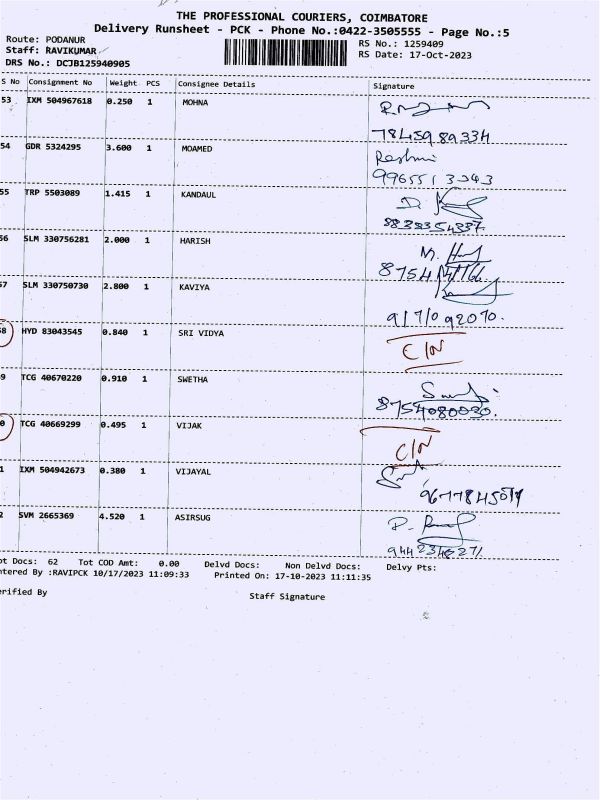 THE PROFESSIONAL COURIERS, COIMBATORE
Delivery Runsheet - PCK - Phone No.:0422-3505555 - Page No.:5
Route: PODANUR
RS No.: 1259409
Staff: RAVIKUMAR
RS Date: 17-Oct-2023
DRS No.: DCJB125940905
S No Consignment No Weight PCS Consignee Details Signature
53 IXM 504967618 0.250 1 MOHNA
7845989334
54 GDR 5324295 3.600 1 MOAMED Reshmi
9965513343
55 TRP 5503089 1.415 1 KANDAUL
8838354337
56 SLM 330756281 2.000 1 HARISH
57 SLM 330750730 2.800 1 KAVIYA
9171092070.
58 HYD 83043545 0.840 1 SRI VIDYA C/N
9 TCG 40670220 0.910 1 SWETHA
8754080030.
0 TCG 40669299 0.495 1 VIJAK C/N
1 IXM 504942673 0.380 1 VIJAYAL
2 SVM 2665369 4.520 1 ASIRSUG
ot Docs: 62 Tot COD Amt: 0.00 Delvd Docs: Non Delvd Docs: Delvy Pts:
ntered By :RAVIPCK 10/17/2023 11:09:33 Printed On: 17-10-2023 11:11:35
erified By Staff Signature